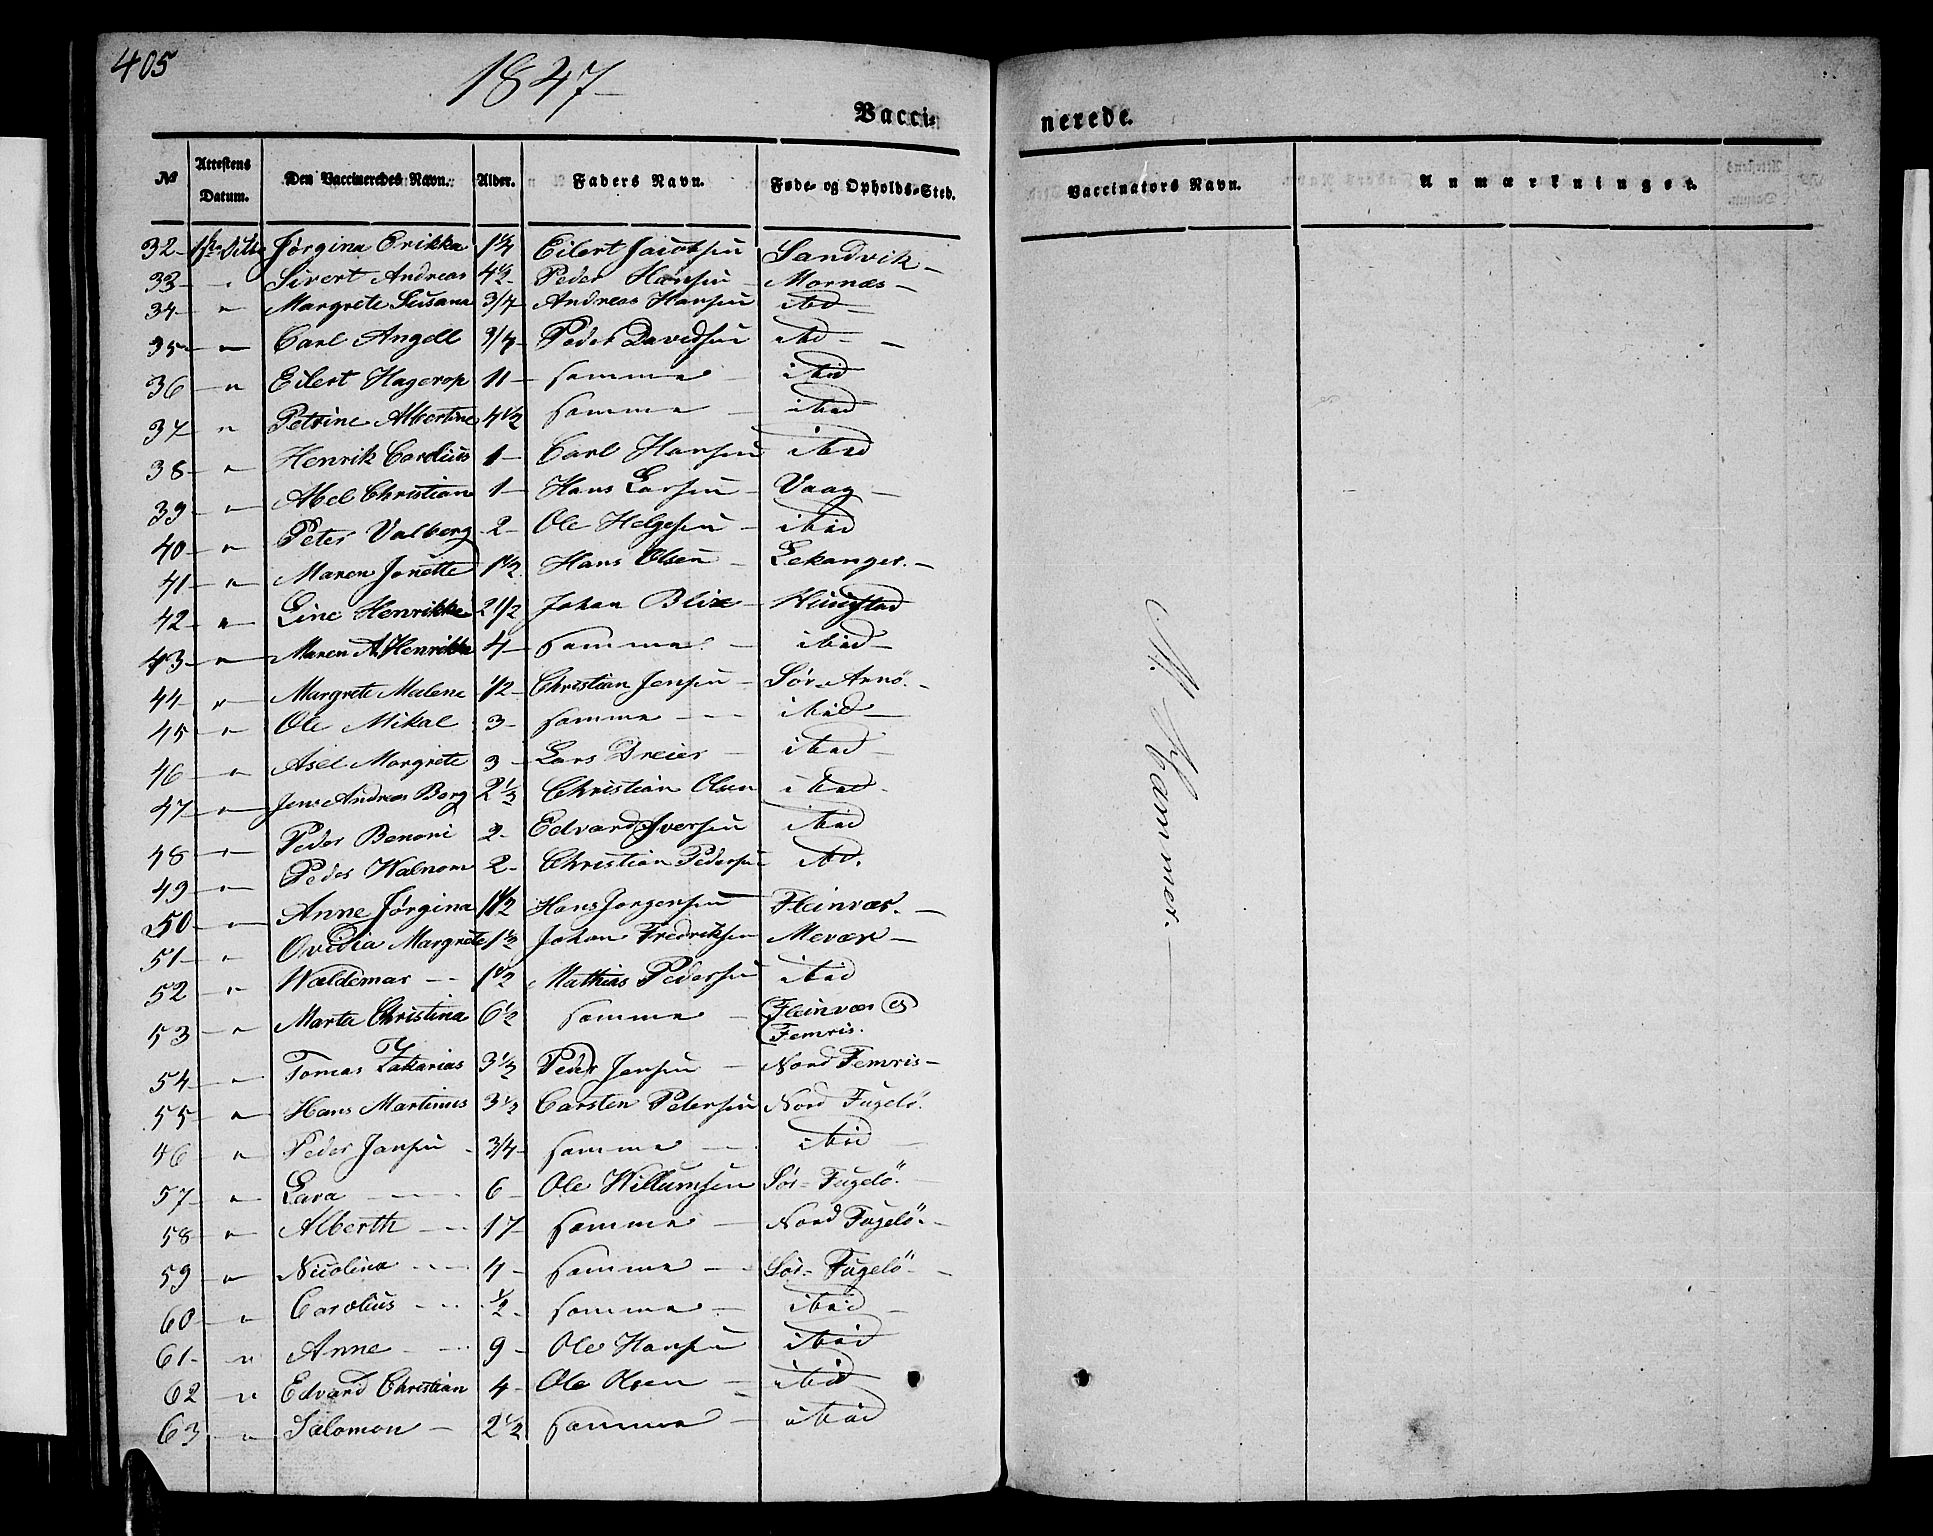 405
1847
Vacci-
nerede.
№ Attestens Datum. Den Vaccineredes Navn. Alder. Faders Navn. Føde- og Opholds-Sted. Vaccinators Navn. Anmærkninger.
32 Jørgina Erikka 1 1/2 Eilert Jacobsen Sandvik
33 " Sivert Andreas 4 1/2 Peder Hansen Mornæs
34 " Margrete Susana 3/4 Andreas Hansen ibd
35 " Carl Angell 3/4 Peder Davidsen ibd
36 " Eilert Hagerop 11 samme ibid
37 " Petrine Albertine 4 1/2 samme ibid
38 " Henrik Carolius 1 Carl Hansen ibid
39 " Abel Christian 1 Hans Larsen Vaag
40 " Peter Valberg 2 Ole Helgesen ibid
41 " Maren Jonette 1 1/2 Hans Olsen Lekanger.
42 " Line Henrikke 2 1/2 Johan Blix
43 " Maren A. Henrikka 4 samme ibid
44 " Margrete Malene 1/2 Christian Jensen Sør-Arnö.
45 " Ole Mikal 3 samme ibid
46 " Asel Margrete 3 Lars Dreier ibid
47 " Jens Andreas Borg 2 1/2 Christian Olsen ibid
48 " Peder Benoni 2 Edvard Iversen ibid
49 " Peder Walnom 2 Christian Pedersen ibd.
50 " Anne Jørgina 1 1/2 Hans Jørgensen Fleinvær.
51 " Ovidia Margrete 1 1/2 Johan Fredriksen Mevær
52 " Waldemar 1 1/2 Mathias Pedersen ibid
53 " Marta Christina 6 1/2 samme Fleinvær og
Femris.
54 " Tomas Zakarias 3 1/2 Peder Jensen Nord Femris
55 " Hans Martinus 3 1/2 Carsten Petersen Nord Fugelö.
46 " Peder Jansen 3/4 samme ibid
57 " Lava 6 Ole Willumsen Sør-Fugelö.
58 " Alberth 17 samme Nord Fugelö.
59 " Nicolina 4 samme Sør-Fugelö
60 " Carolius 1/2 samme ibid
61 " Anne 9 Ole Hansen ibid
62 " Edvard Christian 4 Ole Olsen ibid
63 " Salomon 2 1/2 samme ibid